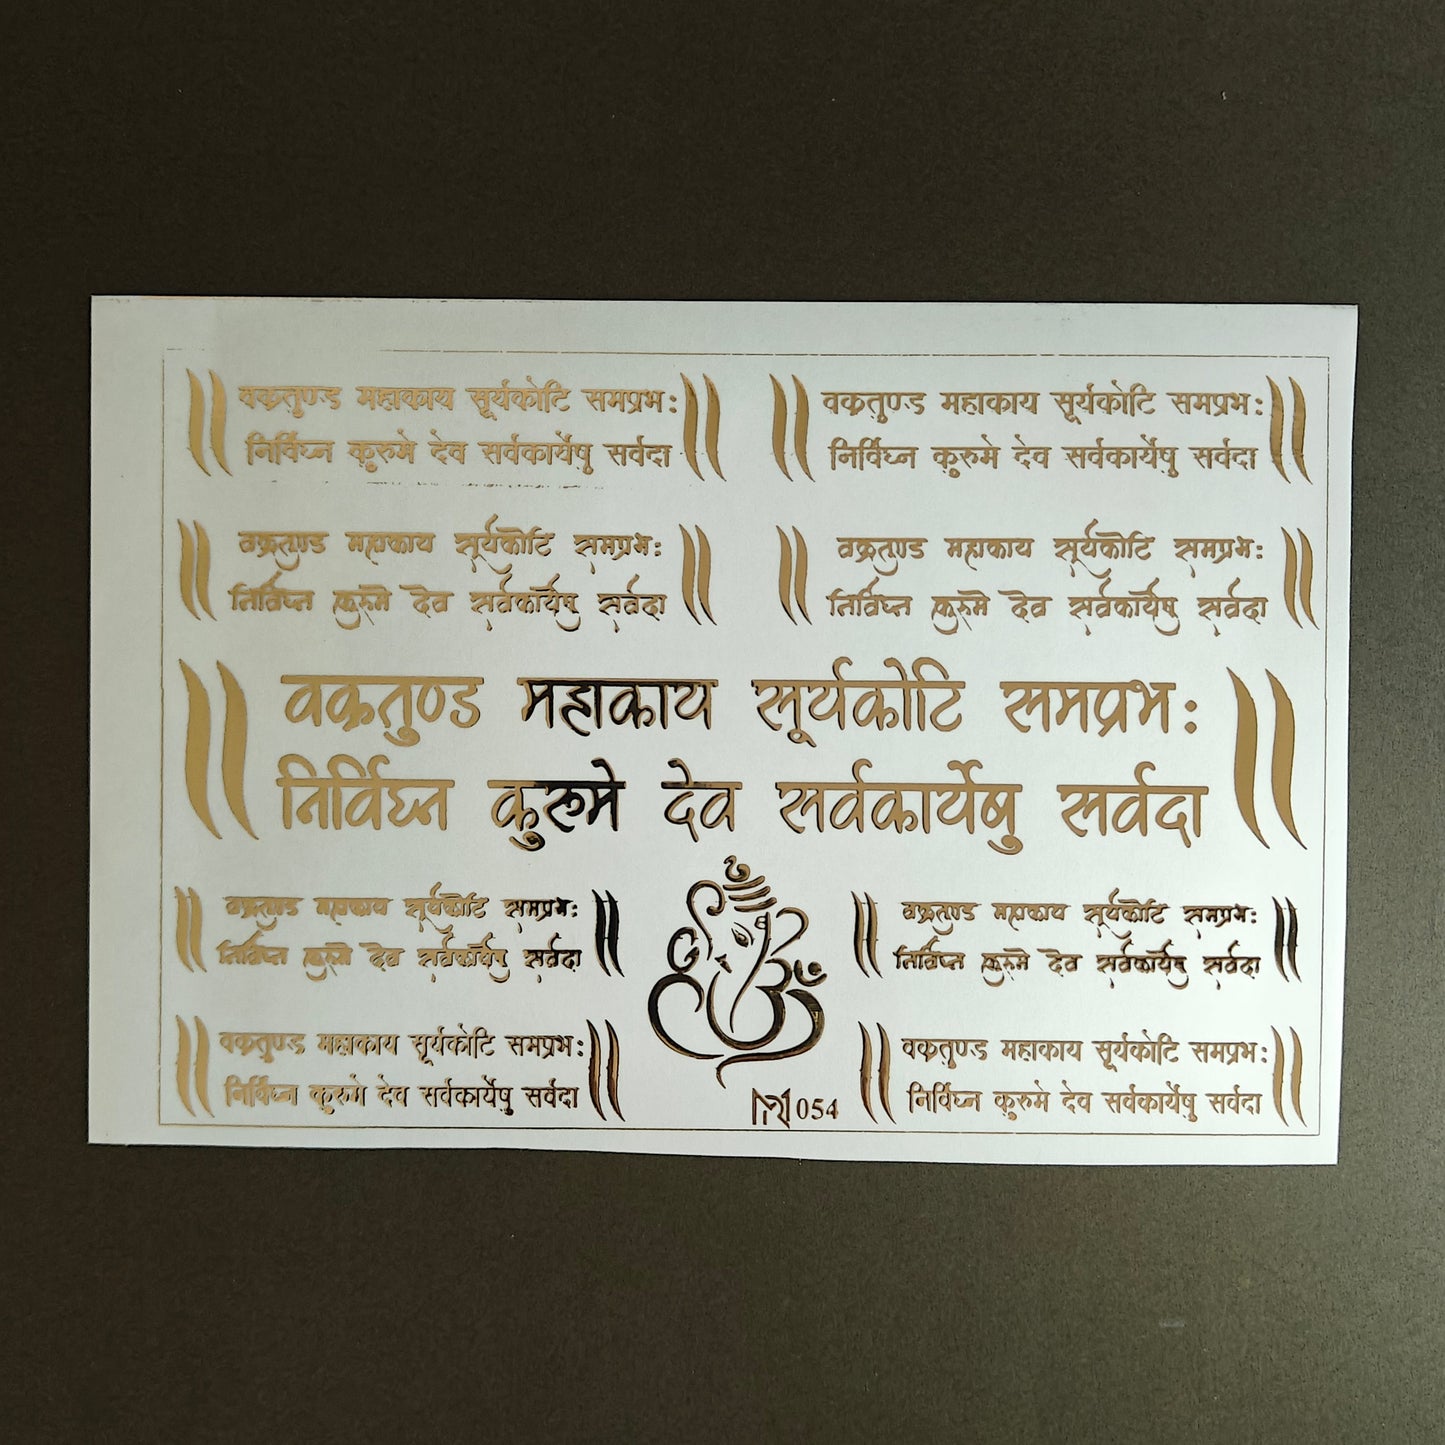 || वक्रतुण्ड महाकाय सूर्यकोटि समप्रभः ||
निर्विघ्न कुरुमे देव सर्वकार्येषु सर्वदा
|| वक्रतुण्ड महाकाय सूर्यकोटि समप्रभः ||
निर्विघ्न कुरुमे देव सर्वकार्येषु सर्वदा
|| वक्रतुण्ड महाकाय सूर्यकोटि समप्रभः ||
निर्विघ्न कुरुमे देव सर्वकार्येषु सर्वदा
|| वक्रतुण्ड महाकाय सूर्यकोटि समप्रभः ||
निर्विघ्न कुरुमे देव सर्वकार्येषु सर्वदा
|| वक्रतुण्ड महाकाय सूर्यकोटि समप्रभः ||
निर्विघ्न कुरूमे देव सर्वकार्येषु सर्वदा
|| वक्रतुण्ड महाकाय सूर्यकोटि समप्रभः ||
निर्विघ्न कुरुमे देव सर्वकार्येषु सर्वदा
|| वक्रतुण्ड महाकाय सूर्यकोटि समप्रभः ||
निर्विघ्न कुरुमे देव सर्वकार्येषु सर्वदा
ॐ
|| वक्रतुण्ड महाकाय सूर्यकोटि समप्रभः ||
निर्विघ्न कुरुमे देव सर्वकार्येषु सर्वदा
|| वक्रतुण्ड महाकाय सूर्यकोटि समप्रभः ||
निर्विघ्न कुरुमे देव सर्वकार्येषु सर्वदा
054